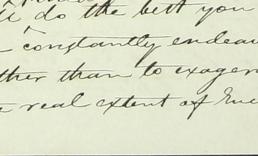 do the best you
constantly endeav
ther than to exager
real extent of